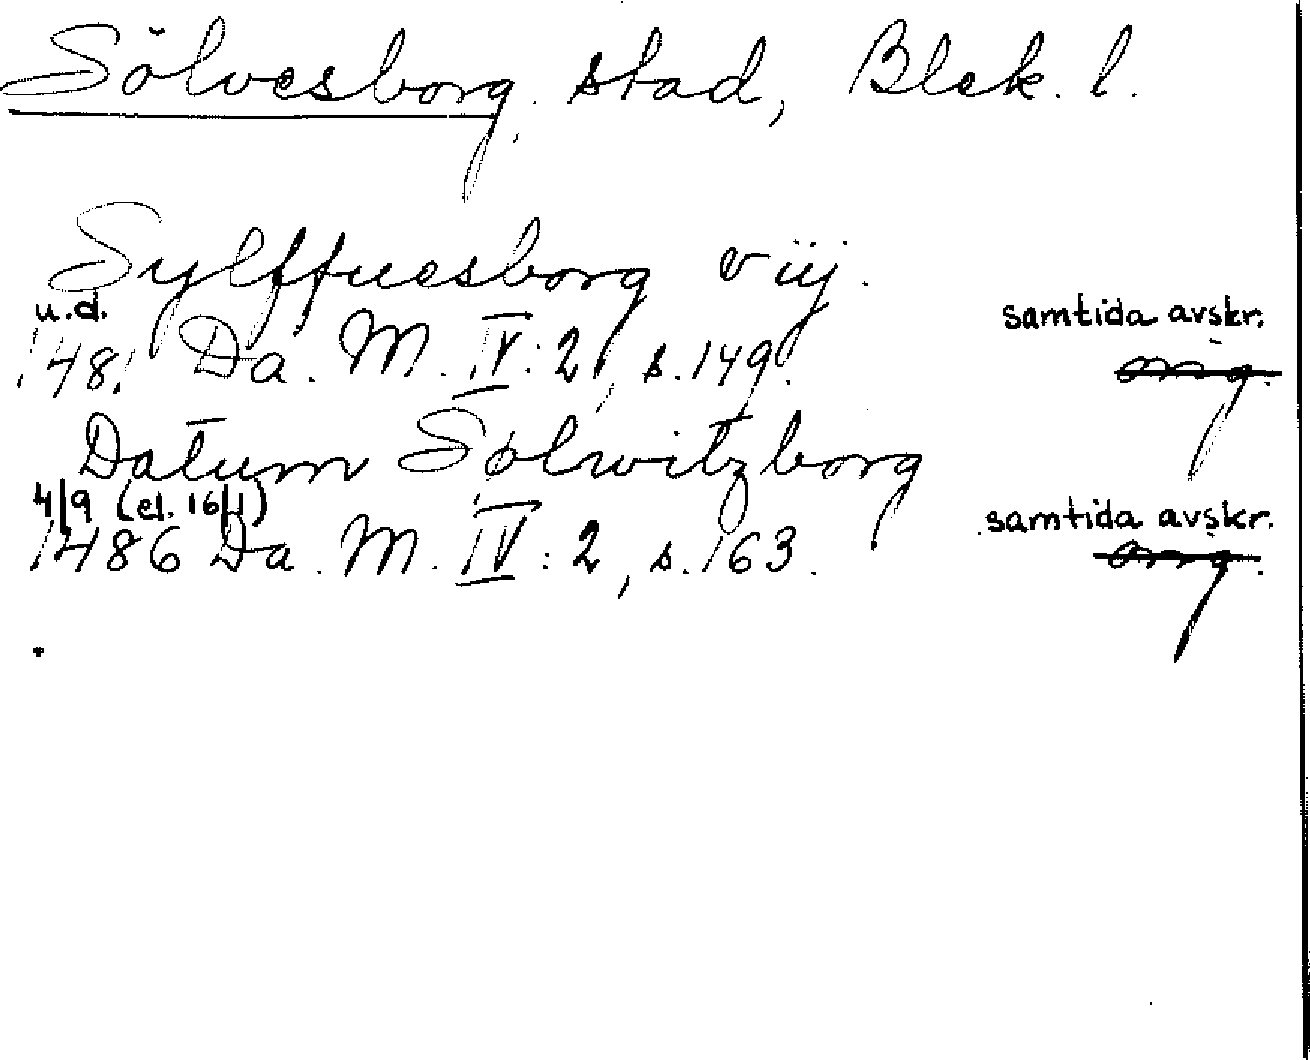 Sölvesborg. stad, Blek. l.
Sylffuesborg v iij.
u.d. samtida avskr.
148. Da. M. IV:2, s. 149. org.
Datum Sølwitzborg
4/9 (el. 16/1) samtida avskr.
1486 Da. M. IV:2, s. 163. org.